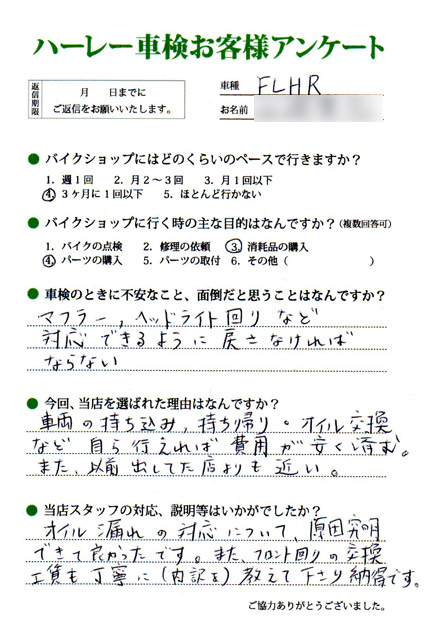 ハーレー車検お客様アンケート
返信期限
月 日までに
ご返信をお願いいたします。
車種 FLHR
お名前
●バイクショップにはどのくらいのペースで行きますか?
1. 週1回 2. 月2〜3回 3. 月1回以下
4. 3ヶ月に1回以下 5. ほとんど行かない
●バイクショップに行く時の主な目的はなんですか?(複数回答可)
1. バイクの点検 2. 修理の依頼 3. 消耗品の購入
4. パーツの購入 5. パーツの取付 6. その他( )
●車検のときに不安なこと、面倒だと思うことはなんですか?
マフラー,ヘッドライト回り など
対応できるように戻さなければ
ならない
●今回、当店を選ばれた理由はなんですか?
車両の持ち込み,持ち帰り・オイル交換
など 自ら行えれば 費用が安く済む。
また、以前出してた店よりも近い。
●当店スタッフの対応、説明等はいかがでしたか?
オイル漏れの対応について、原因究明
できて良かったです。また、フロント回りの交換
工賃も丁寧に(内訳を)教えて下さり納得です。
ご協力ありがとうございました。